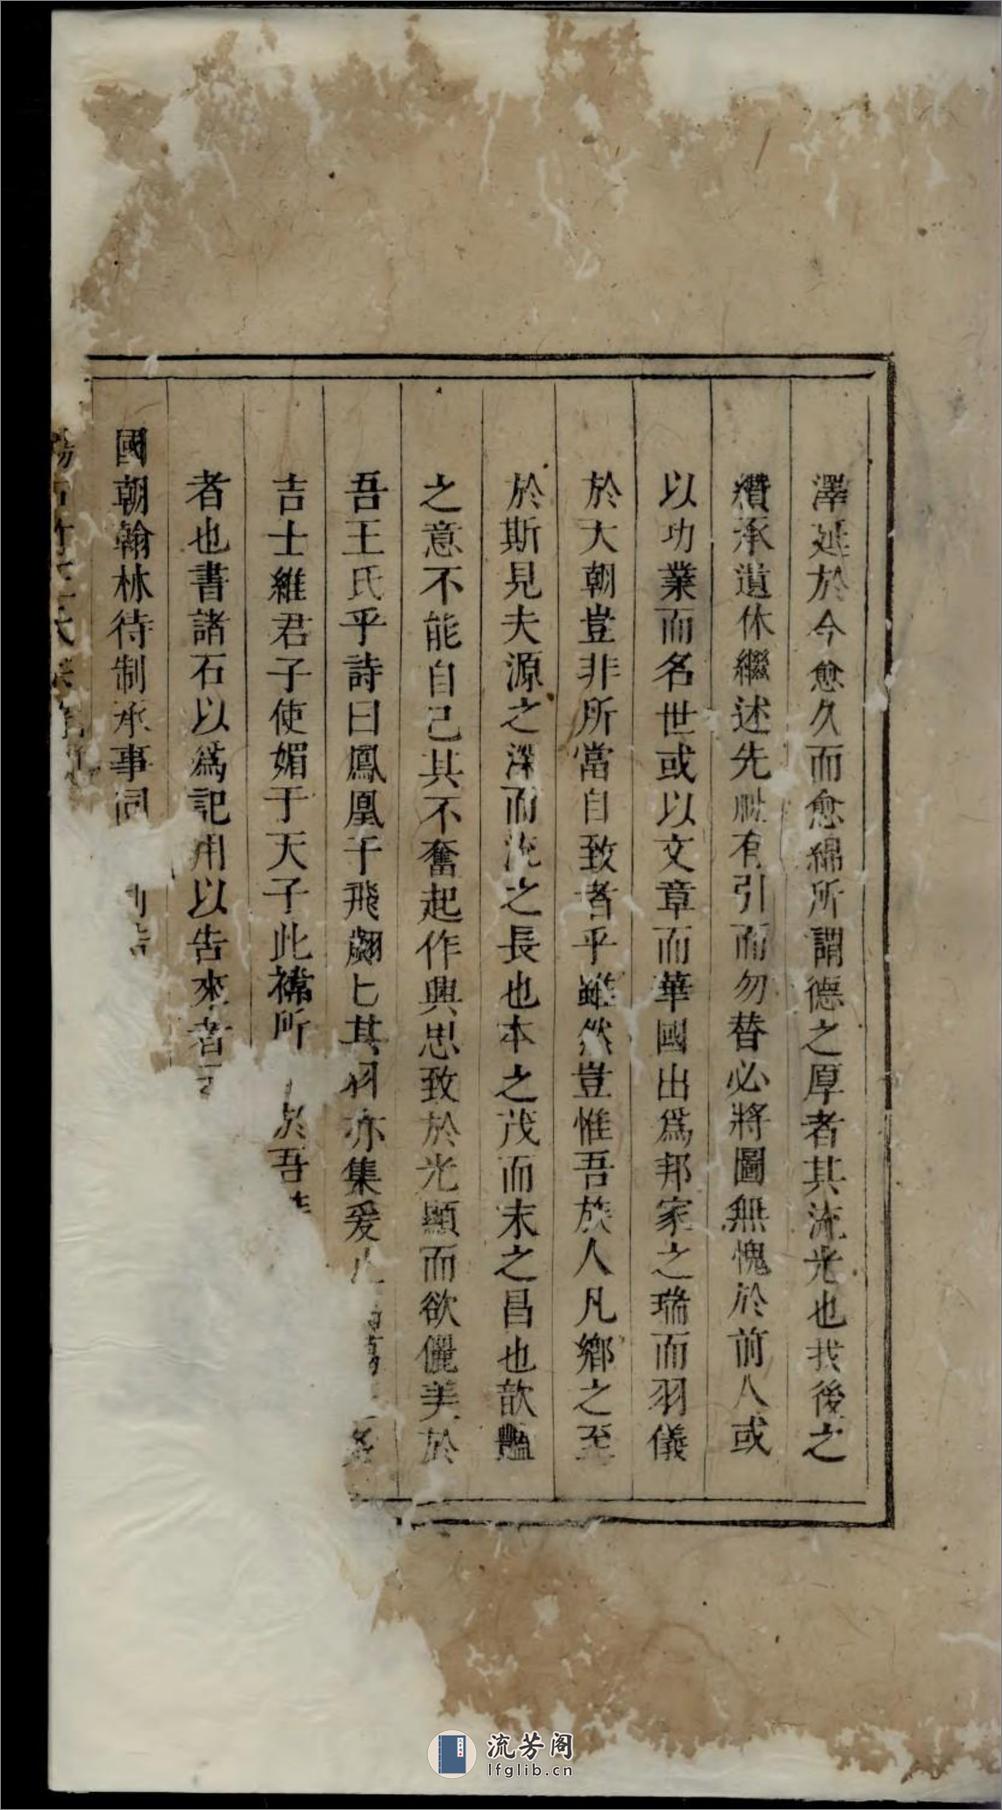 澤延於今愈久而愈綿所謂德之厚者其流光也我後之
纘承遺休繼述先畎有引而勿替必將圖無愧於前人或
以功業而名世或以文章而華國出爲邦家之瑞而羽儀
於大朝豈非所當自致者乎雖然豈惟吾族人凡鄉之至
於斯見夫源之深而流之長也本之茂而末之昌也歆豔
之意不能自己其不奮起作興思致於光顯而欲儷美於
吾王氏乎詩曰鳳凰于飛翽匕其羽亦集爰止
吉士維君子使媚于天子此禱所於吾
者也書諸石以爲記用以告來者
國朝翰林待制承事同
流芳阁
lfglib.cn